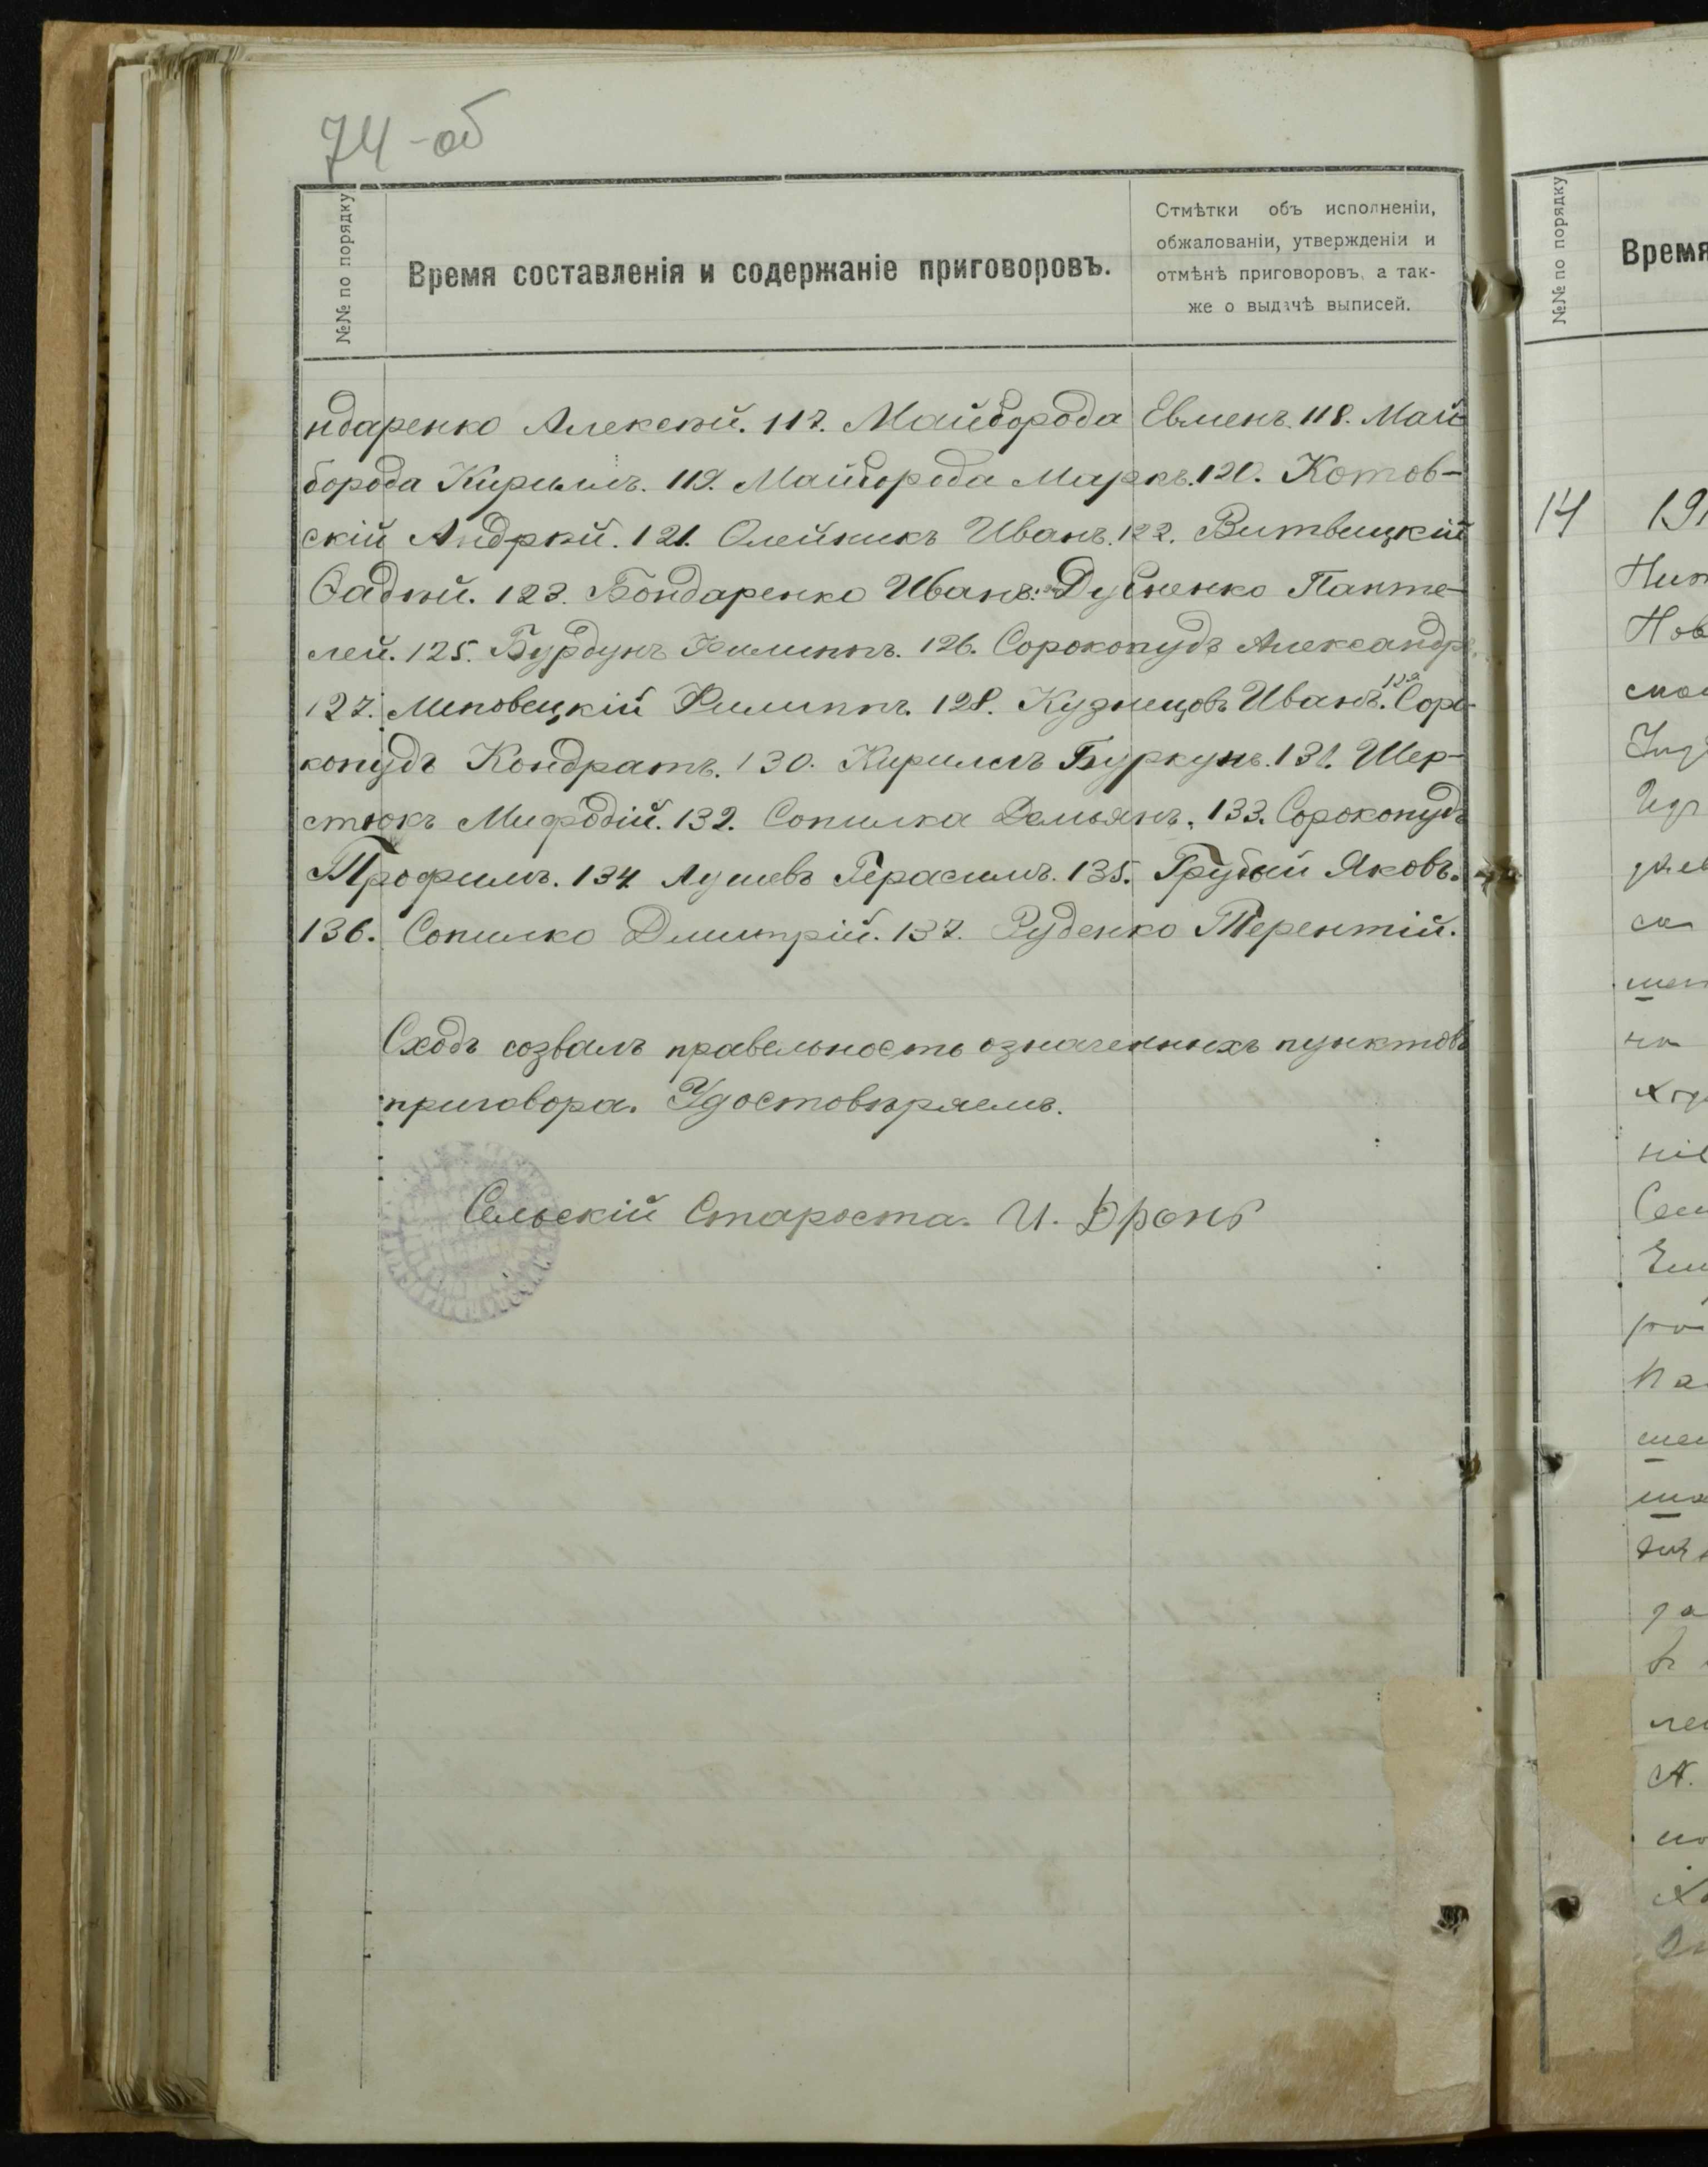 74-об
№№ по порядку
Время составленія и содержаніе приговоровъ.
Отмѣтки объ исполненіи,
обжалованіи, утвержденіи и
отмѣнѣ приговоровъ, а так-
же о выдачѣ выписей.
ндаренко Алексѣй. 117. Майборода Евменъ. 118. Май-
борода Кириллъ. 119. Майборода Маркъ. 120. Котов-
скій Андрѣй. 121. Олейникъ Иванъ. 122. Витвицкій
Фадѣй. 123. Бондаренко Иванъ. Пантe-
лей. 125. Бурдунъ Филиппъ. 126. Сорокопудъ Александръ.
127. Меновецкій Филиппъ. 128. Кузнецовъ Иванъ. 129. Соро-
копудъ Кондратъ. 130. Кириллъ Буркунъ. 131. Шер-
стюкъ Мифодій. 132. Сопилка Демьянъ. 133. Сорокопудъ
Трофимъ. 134 Лушевъ Герасимъ. 135. Грубый Яковъ.
136. Сопилко Дмитрій. 137. Руденко Терентій.
Сходъ созвалъ правельность означенныхъ пунктовъ
приговора. Удостовѣряемъ.
Сельскій Староста. И. Дронъ
№№ по порядку
Время
14
191